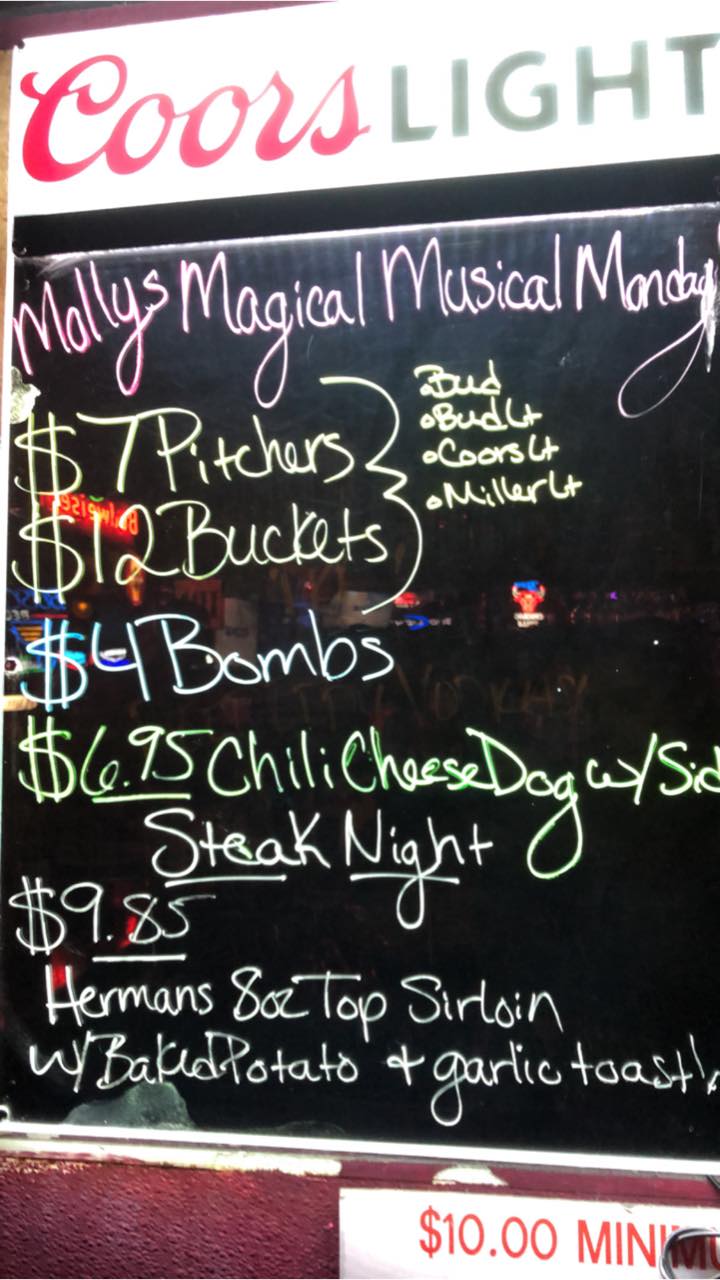 Coors LIGHT
Mollys Magical Musical Monday
$7 Pitchers
$12 Buckets
• Bud
• Bud Lt
• Coors Lt
• Miller Lt
$4 Bombs
$6.95 Chili Cheese Dog w/ Sid
Steak Night
$9.85
Hermans 8oz Top Sirloin
w/ Baked Potato + garlic toast!
$10.00 MINIMU